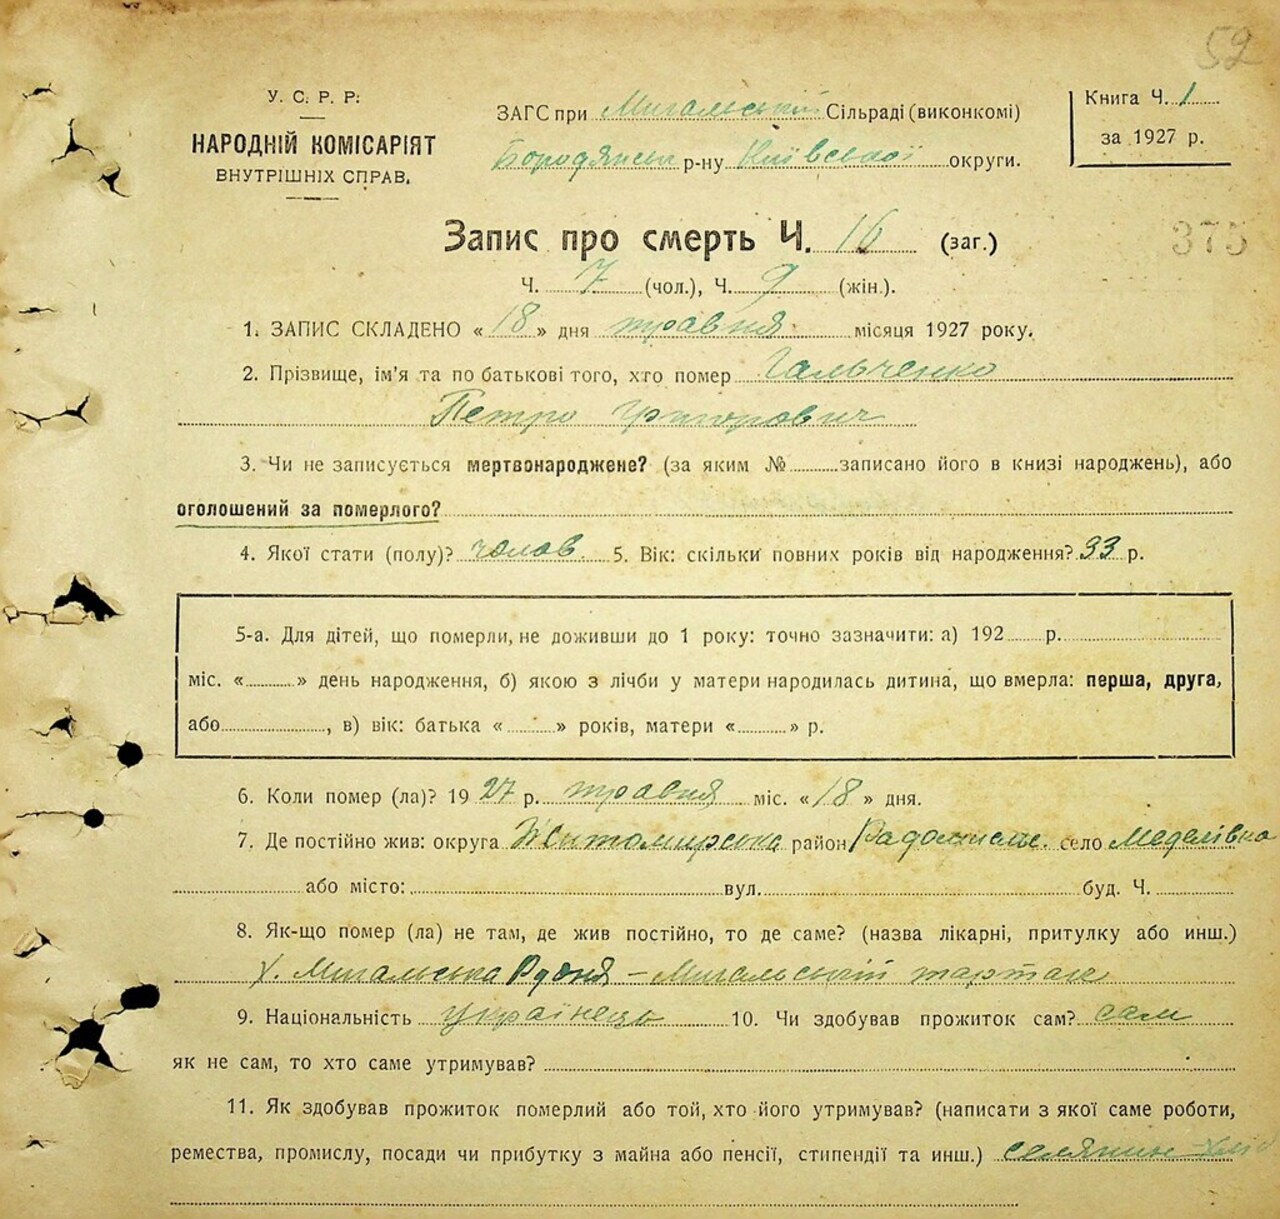 52
У. С. Р. Р.
НАРОДНІЙ КОМІСАРІЯТ
ВНУТРІШНІХ СПРАВ.
ЗАГС при Мигальській Сільраді (виконкомі)
Бородянськ р-ну Київської округи.
Книга Ч. 1
за 1927 р.
Запис про смерть Ч. 16 (заг.)
375
Ч. 7 (чол.), Ч. 9 (жін.).
1. ЗАПИС СКЛАДЕНО «18» дня травня місяця 1927 року.
2. Прізвище, ім'я та по батькові того, хто помер Гальченко
Петро Григорович
3. Чи не записується мертвонароджене? (за яким №..........записано його в книзі народжень), або
оголошений за померлого?
4. Якої стати (полу)? чолов. 5. Вік: скільки повних років від народження? 33 р.
5-а. Для дітей, що померли, не доживши до 1 року: точно зазначити: а) 192......р.
міс. «..........» день народження, б) якою з лічби у матери народилась дитина, що вмерла: перша, друга,
або...................., в) вік: батька «..........» років, матери «..........» р.
6. Коли помер (ла)? 1927 р. травня міс. «18» дня.
7. Де постійно жив: округа Житомирська район село Меделівка
або місто: вул. буд. Ч.
8. Як-що помер (ла) не там, де жив постійно, то де саме? (назва лікарні, притулку або инш.)
Х. Мигальська Рудня – Мигальській тартак
9. Національність українець 10. Чи здобував прожиток сам? сам
як не сам, то хто саме утримував?
11. Як здобував прожиток померлий або той, хто його утримував? (написати з якої саме роботи,
ремества, промислу, посади чи прибутку з майна або пенсії, стипендії та инш.) селянин